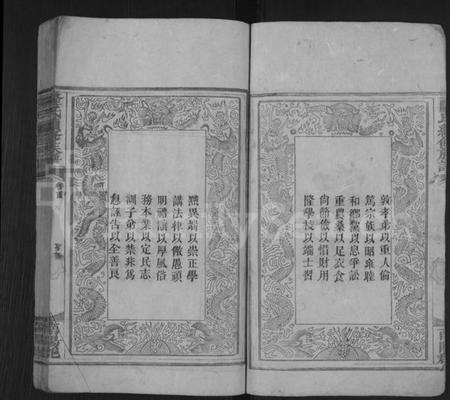 敦孝弟以重人倫
篤宗族以昭雍睦
和鄉黨以息爭訟
重農桑以足衣食
尚節儉以惜財用
隆學校以端士習
黜異端以崇正學
講法律以儆愚頑
明禮讓以厚風俗
務本業以定民志
訓子弟以禁非為
息誣告以全善良